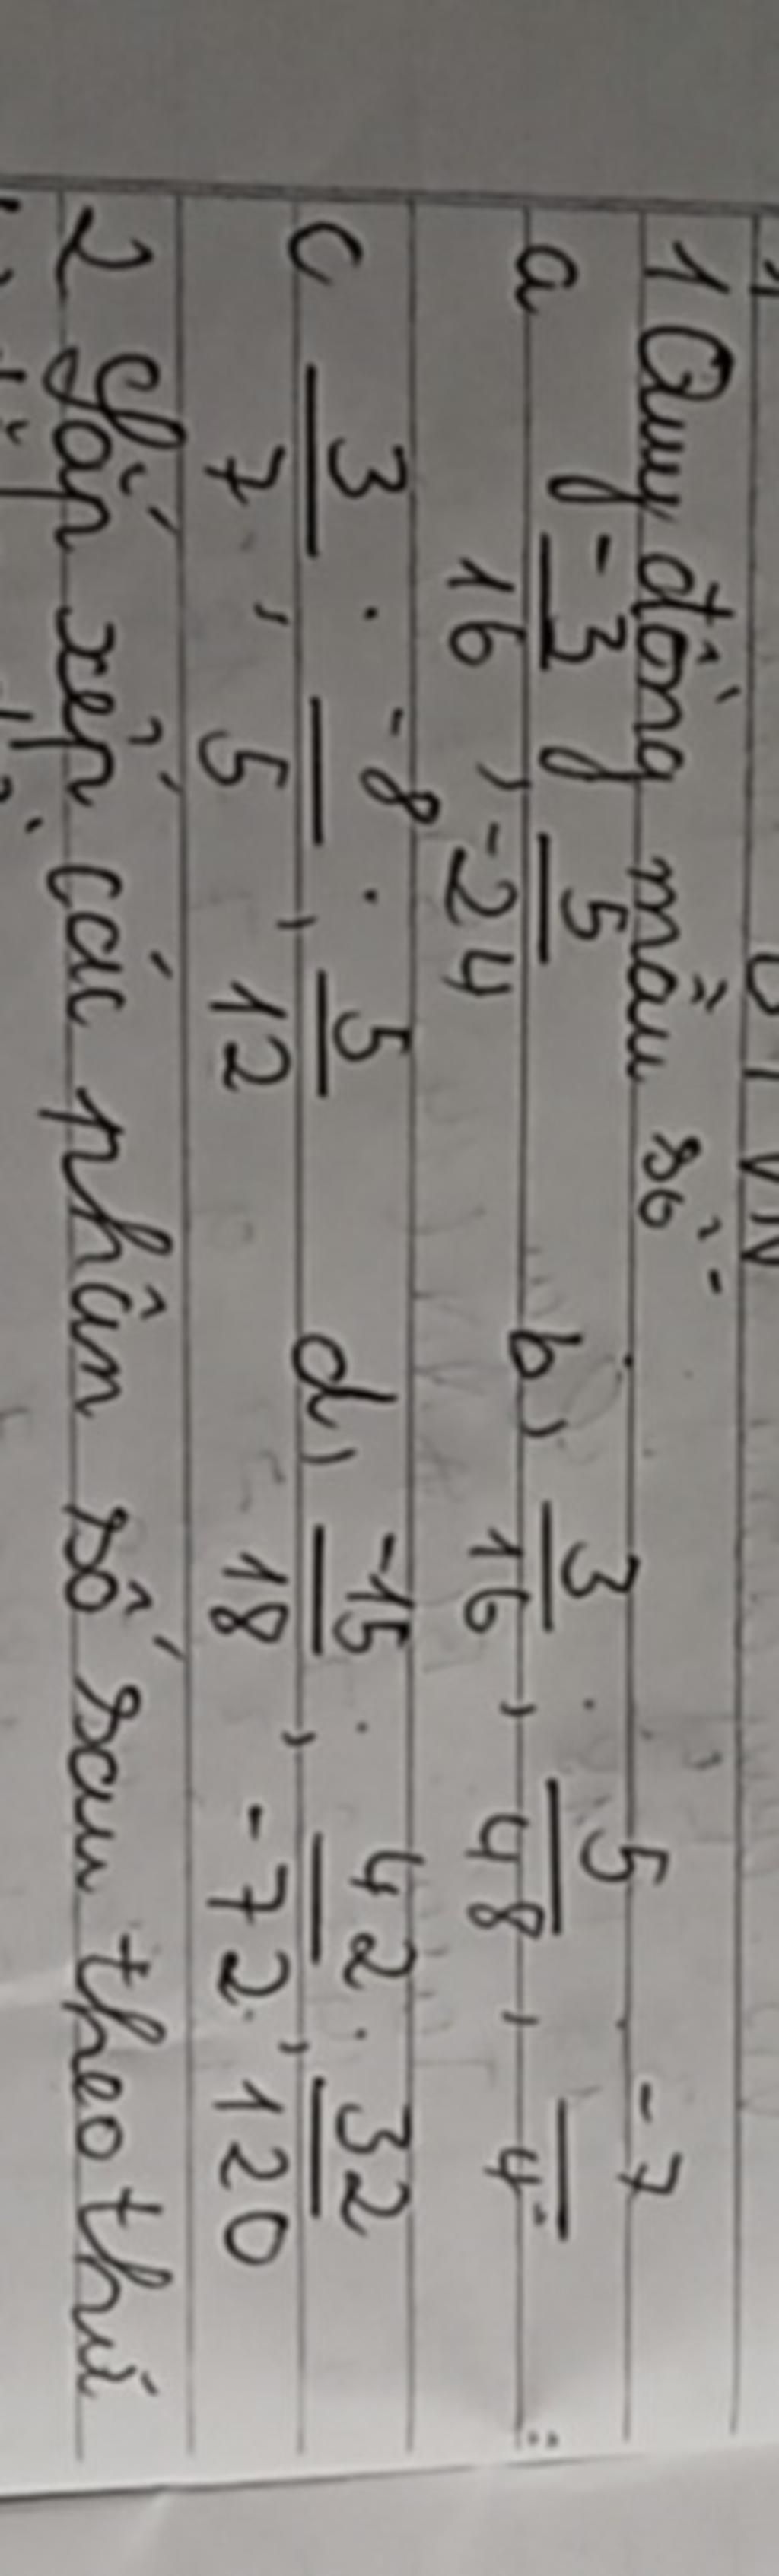 BTVN
1 Quy đồng mẫu số -
a -3/16 , 5/-24 b) 3/16 , 5/48 , -7/4
c 3/7 , -8/5 , 5/12 d) -15/18 , 42/-72 , 32/120
2 Sắp xếp các phân số sau theo thứ